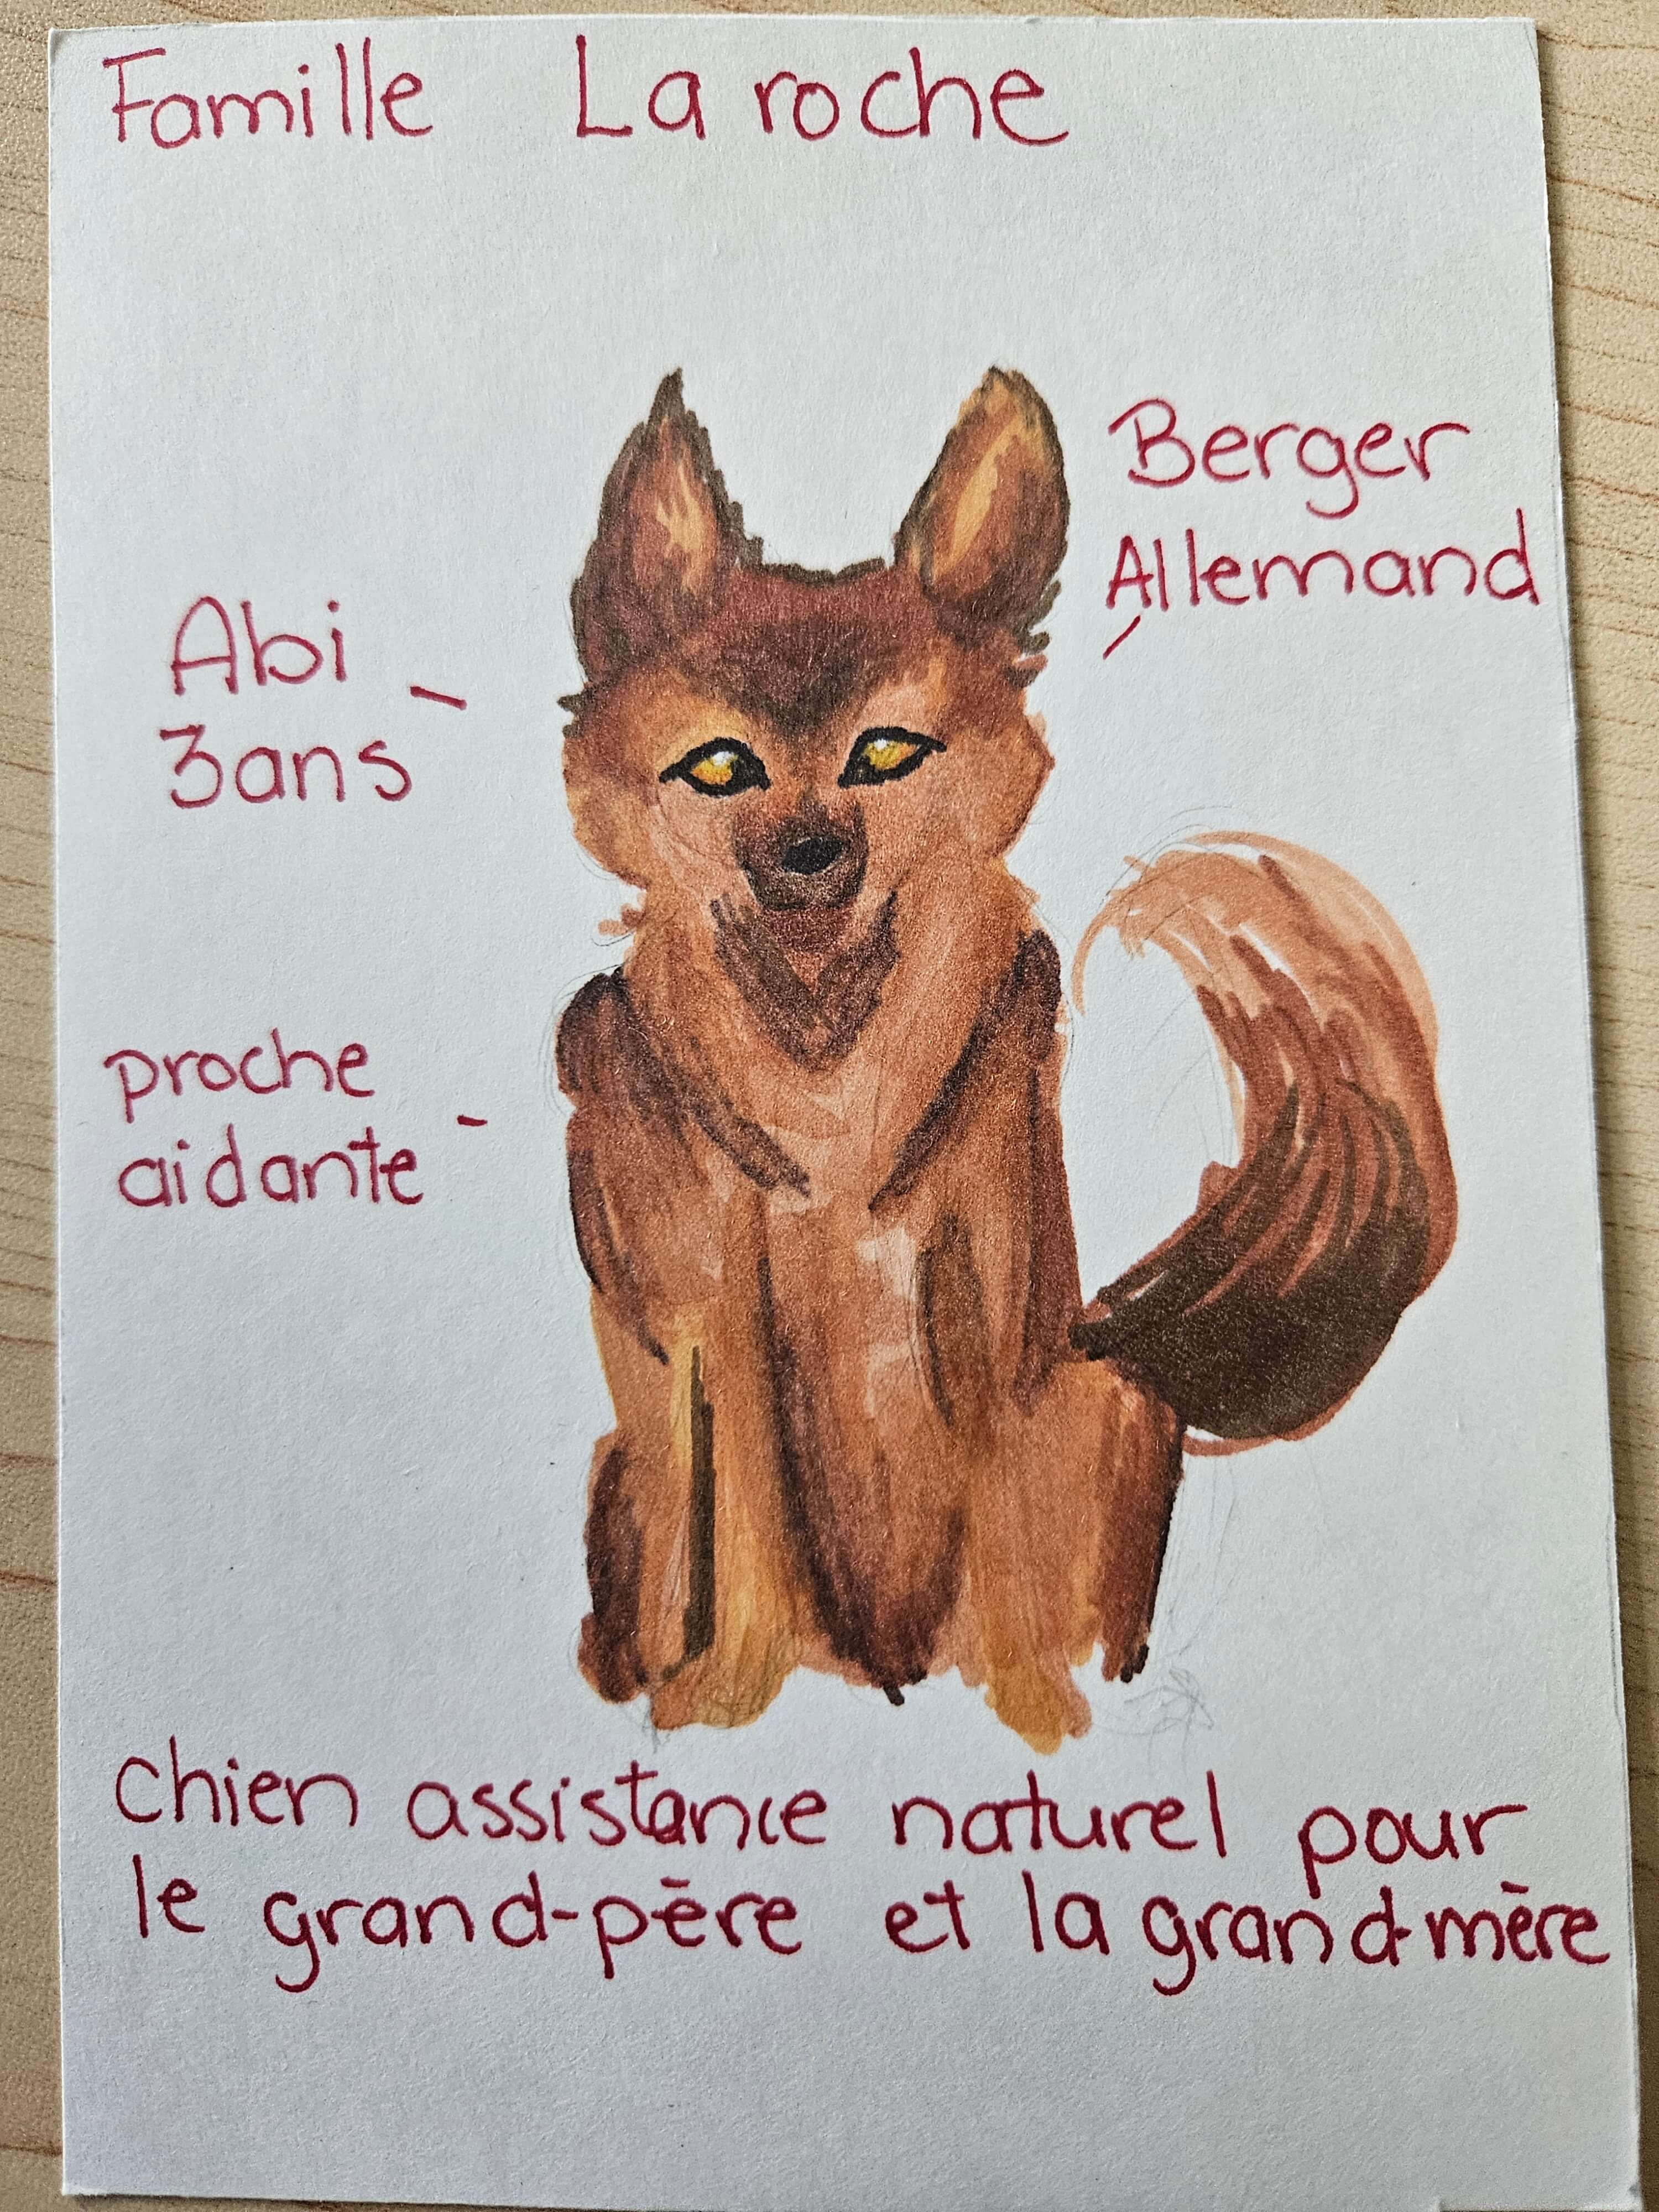 Famille La roche
Berger
Allemand
Abi
3ans
proche
aidante
chien assistance naturel pour
le grand-père et la grand-mère